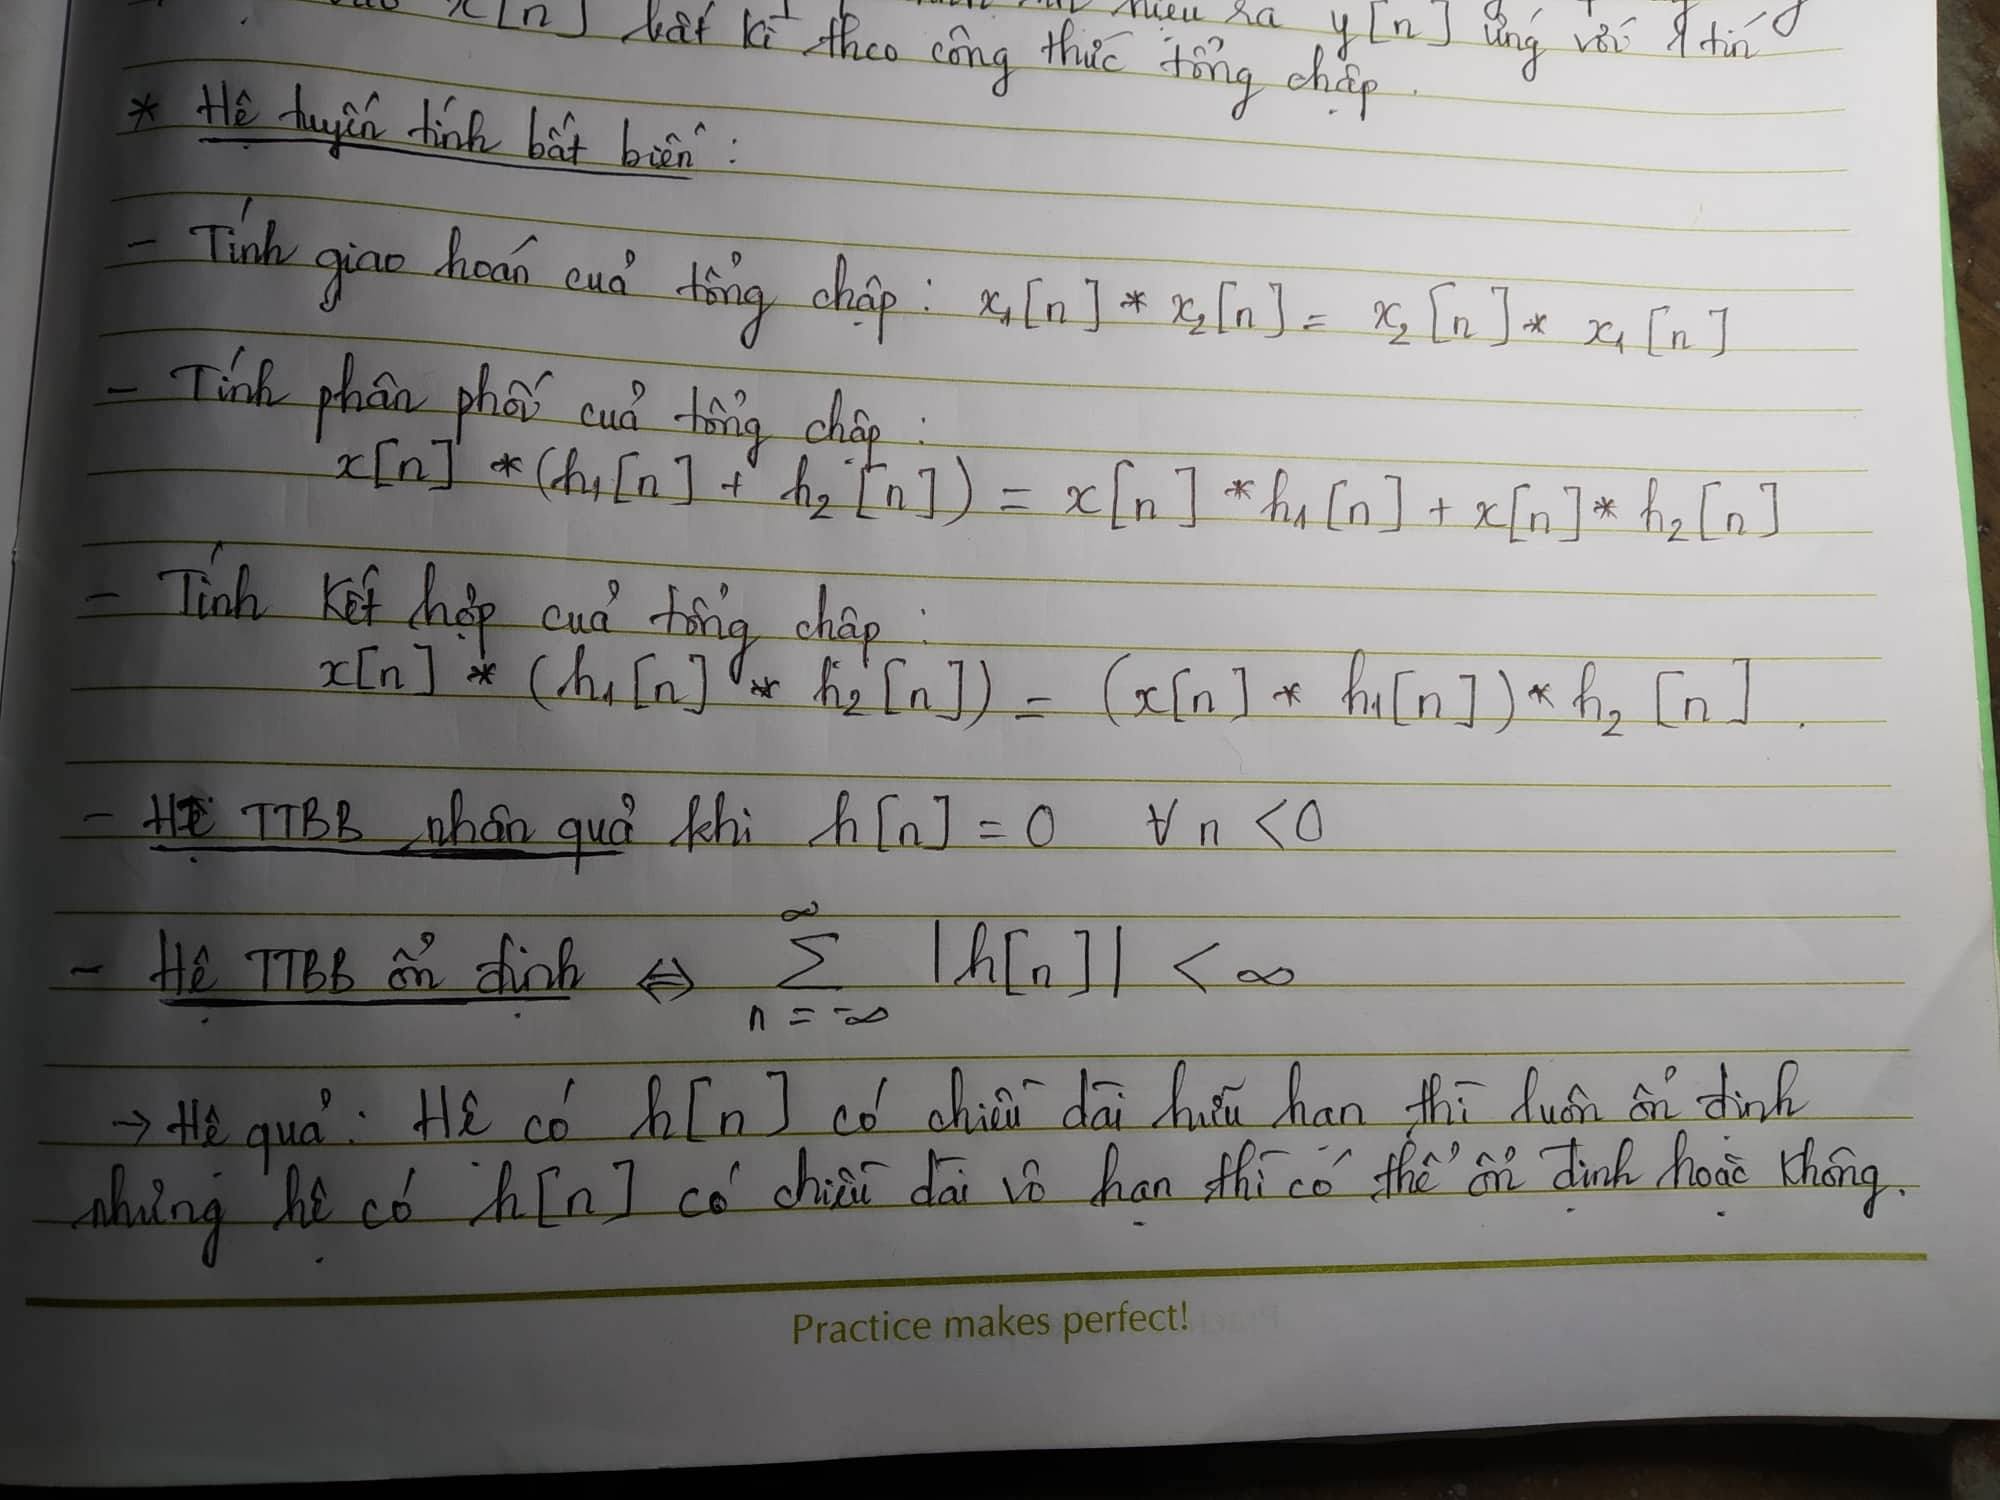 x[n] bất kì theo công thức tổng chập.
hiệu ra y[n] ứng với 1 tín
* Hệ tuyến tính bất biến:
- Tính giao hoán của tổng chập: x₁[n] * x₂[n] = x₂[n] * x₁[n]
- Tính phân phối của tổng chập:
x[n] * (h₁[n] + h₂[n]) = x[n] * h₁[n] + x[n] * h₂[n]
- Tính kết hợp của tổng chập:
x[n] * (h₁[n] * h₂[n]) = (x[n] * h₁[n]) * h₂[n].
- Hệ TTBB nhân quả khi h[n] = 0 ∀ n < 0
- Hệ TTBB ổn định ⇔ ∑_{n=-∞}^{∞} |h[n]| < ∞
→ Hệ quả: Hệ có h[n] có chiều dài hữu hạn thì luôn ổn định
nhưng hệ có h[n] có chiều dài vô hạn thì có thể ổn định hoặc không.
Practice makes perfect!